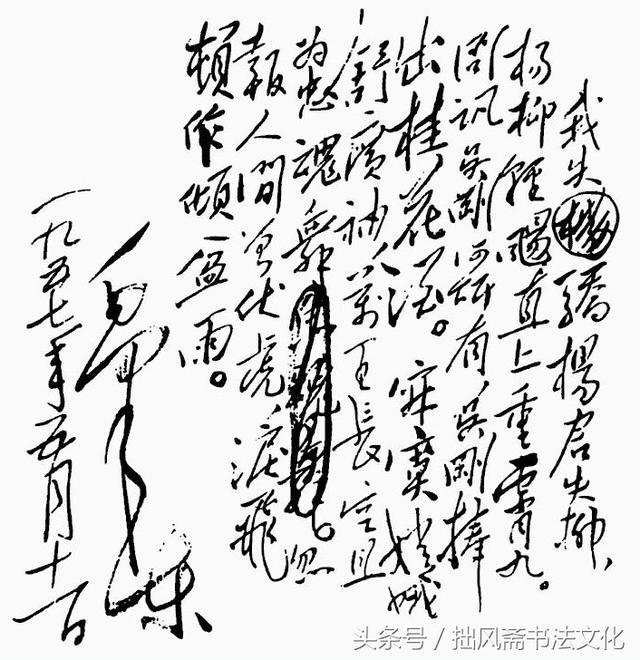 我失驕楊君失柳、
杨柳輕颺直上重霄九。
问訊吴刚何所有、吴剛捧
出桂花酒。寂寞嫦娥
舒廣袖、萬里長空且
为忠魂舞。忽
報人间曾伏虎、淚飛
頓作倾盆雨。
毛泽东
一九五七年五月十一日
头条号／拙风斋书法文化